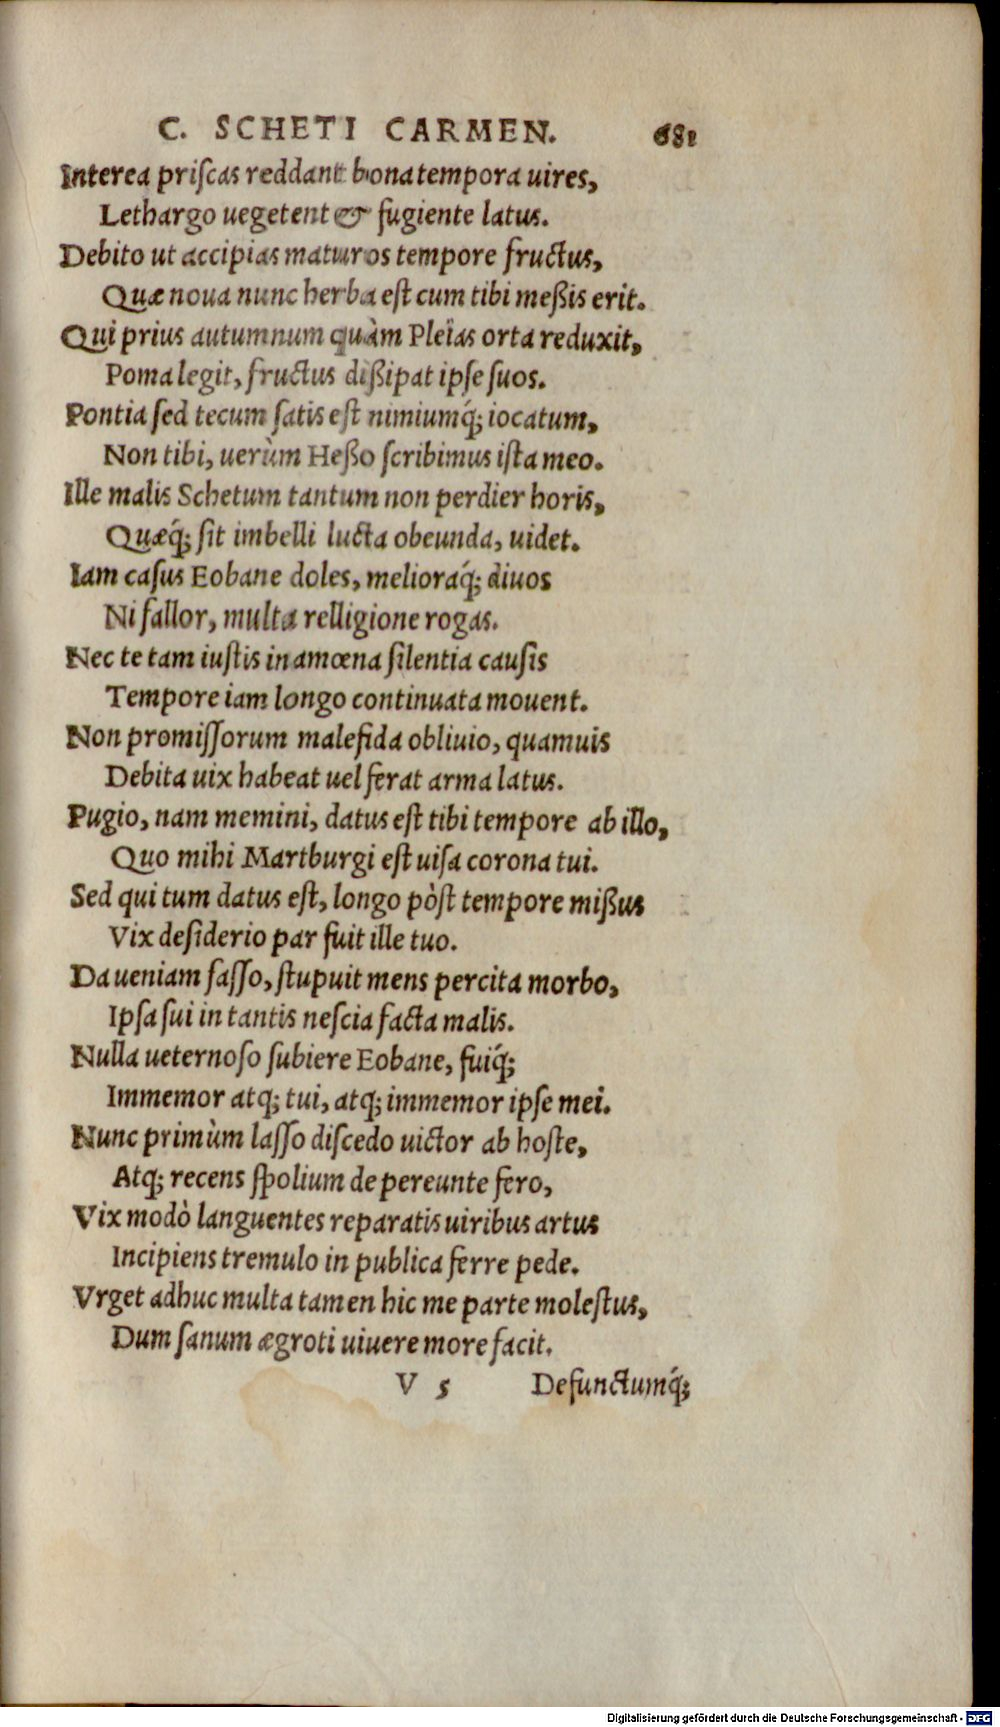 C. SCHETI CARMEN. 681
Interea priſcas reddant bona tempora uires,
Lethargo uegetent & fugiente latus.
Debito ut accipias maturos tempore fructus,
Quæ noua nunc herba eſt cum tibi meßis erit.
Qui prius autumnum quàm Pleïas orta reduxit,
Poma legit, fructus dißipat ipſe ſuos.
Pontia ſed tecum ſatis eſt nimiumq́; iocatum,
Non tibi, uerùm Heßo ſcribimus iſta meo.
Ille malis Schetum tantum non perdier horis,
Quæq́; ſit imbelli lucta obeunda, uidet.
Iam caſus Eobane doles, melioraq́; diuos
Ni fallor, multa relligione rogas.
Nec te tam iuſtis inamœna ſilentia cauſis
Tempore iam longo continuata mouent.
Non promiſſorum malefida obliuio, quamuis
Debita uix habeat uel ferat arma latus.
Pugio, nam memini, datus eſt tibi tempore ab illo,
Quo mihi Martburgi eſt uiſa corona tui.
Sed qui tum datus eſt, longo pòſt tempore mißus
Vix deſiderio par fuit ille tuo.
Da ueniam faſſo, ſtupuit mens percita morbo,
Ipſa ſui in tantis neſcia facta malis.
Nulla ueternoſo ſubiere Eobane, fuiq́;
Immemor atq; tui, atq; immemor ipſe mei.
Nunc primùm laſſo diſcedo uictor ab hoſte,
Atq; recens ſpolium de pereunte fero,
Vix modò languentes reparatis uiribus artus
Incipiens tremulo in publica ferre pede.
Vrget adhuc multa tamen hic me parte moleſtus,
Dum ſanum ægroti uiuere more facit.
V 5 Defunctumq́;
Digitalisierung gefördert durch die Deutsche Forschungsgemeinschaft - DFG